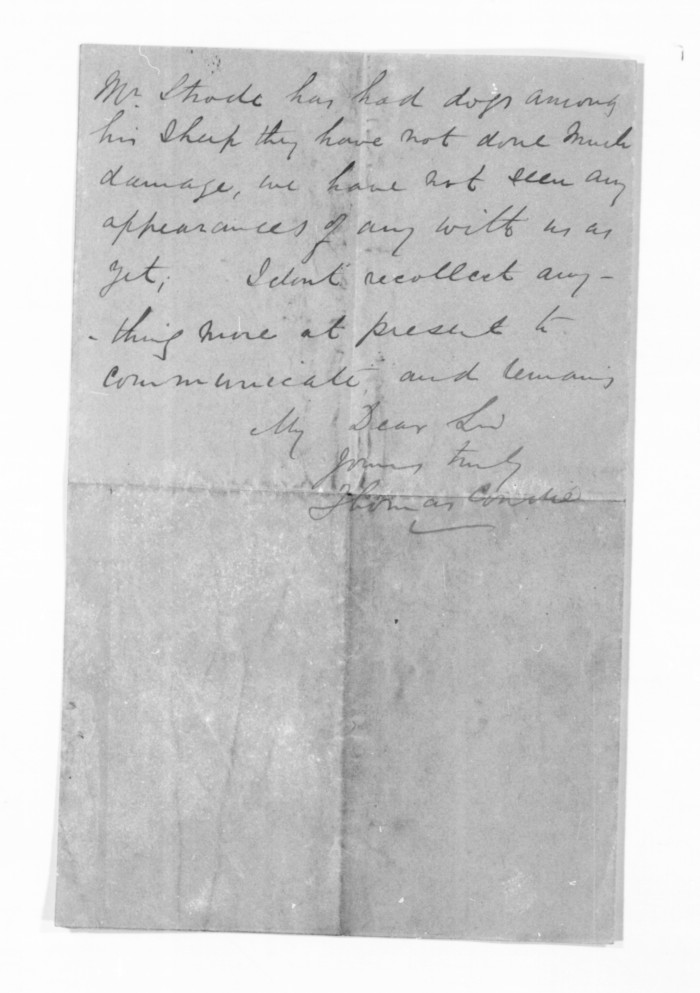 Mr. Strode has had dogs among
his Sheep they have not done Much
damage, we have not seen any
appearances of any with us as
yet; I dont recollect any-
-thing more at present to
communicate and remains
My Dear Sir
Yours truly
Thomas